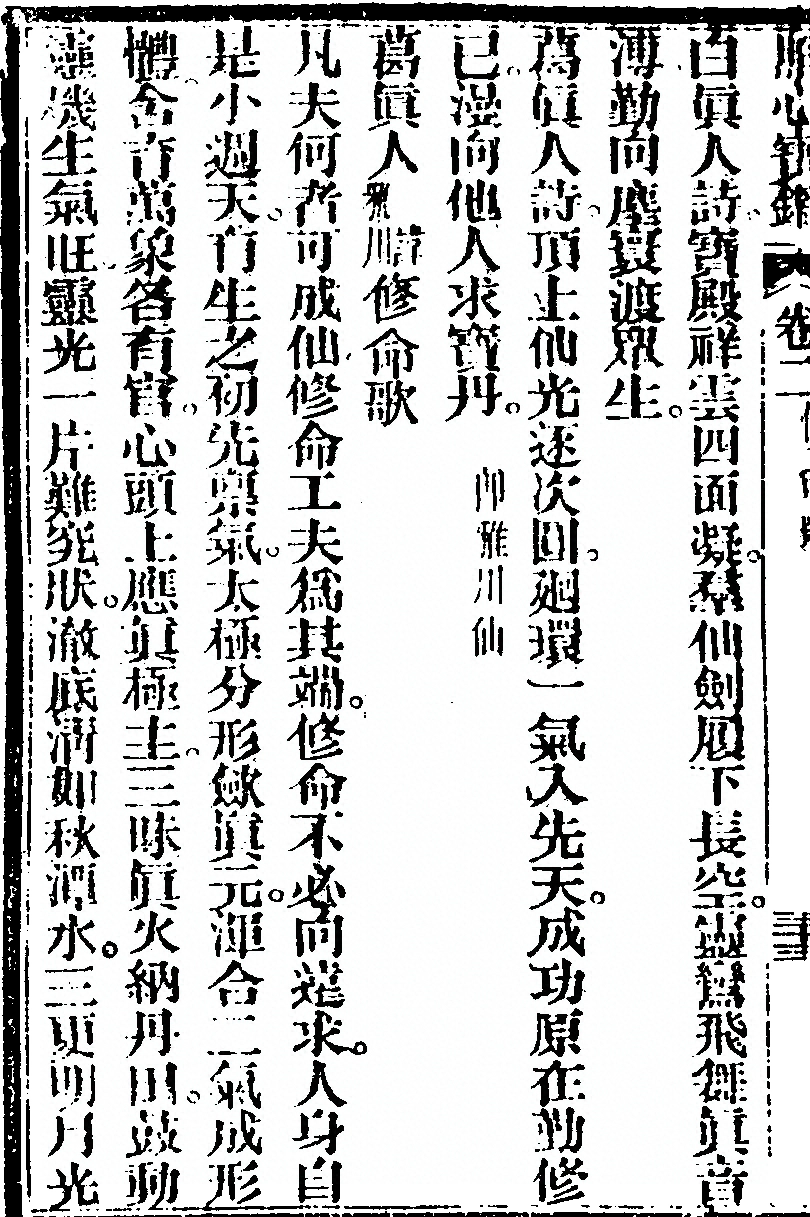 心 卷二
白眞人詩寶殿祥雲四面凝羣仙劍履下長空靈鶴飛舞眞音
薄勤向塵寰渡眾生
葛眞人詩頂上仙光逐次圓廻環一氣入先天成功原在勤修
已漫向他人求寶丹 卽雅川仙
葛眞人雅川諱修命歌
凡夫何者可成仙修命工夫爲其端修命不必向遠求人身自
是小週天有生之初先稟氣太極分形斂眞元渾合二氣成形
體含育萬象各有官心頭上應眞極主三昧眞火納丹田鼓動
靈機生氣旺靈光一片難究狀澈底淸如秋潭水三更明月光